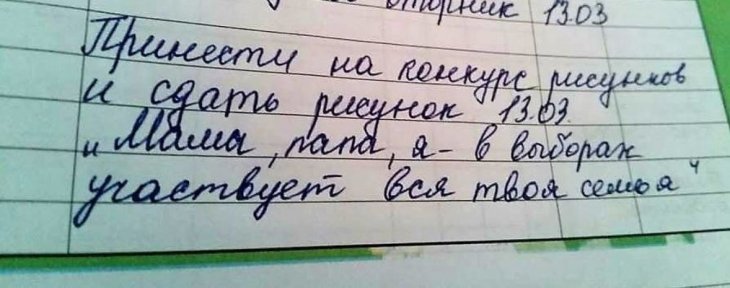 вторник 13.03
Принести на конкурс рисунков
и сдать рисунок 13.03.
"Мамы, папа, я - в выборах
участвует вся твоя семья"